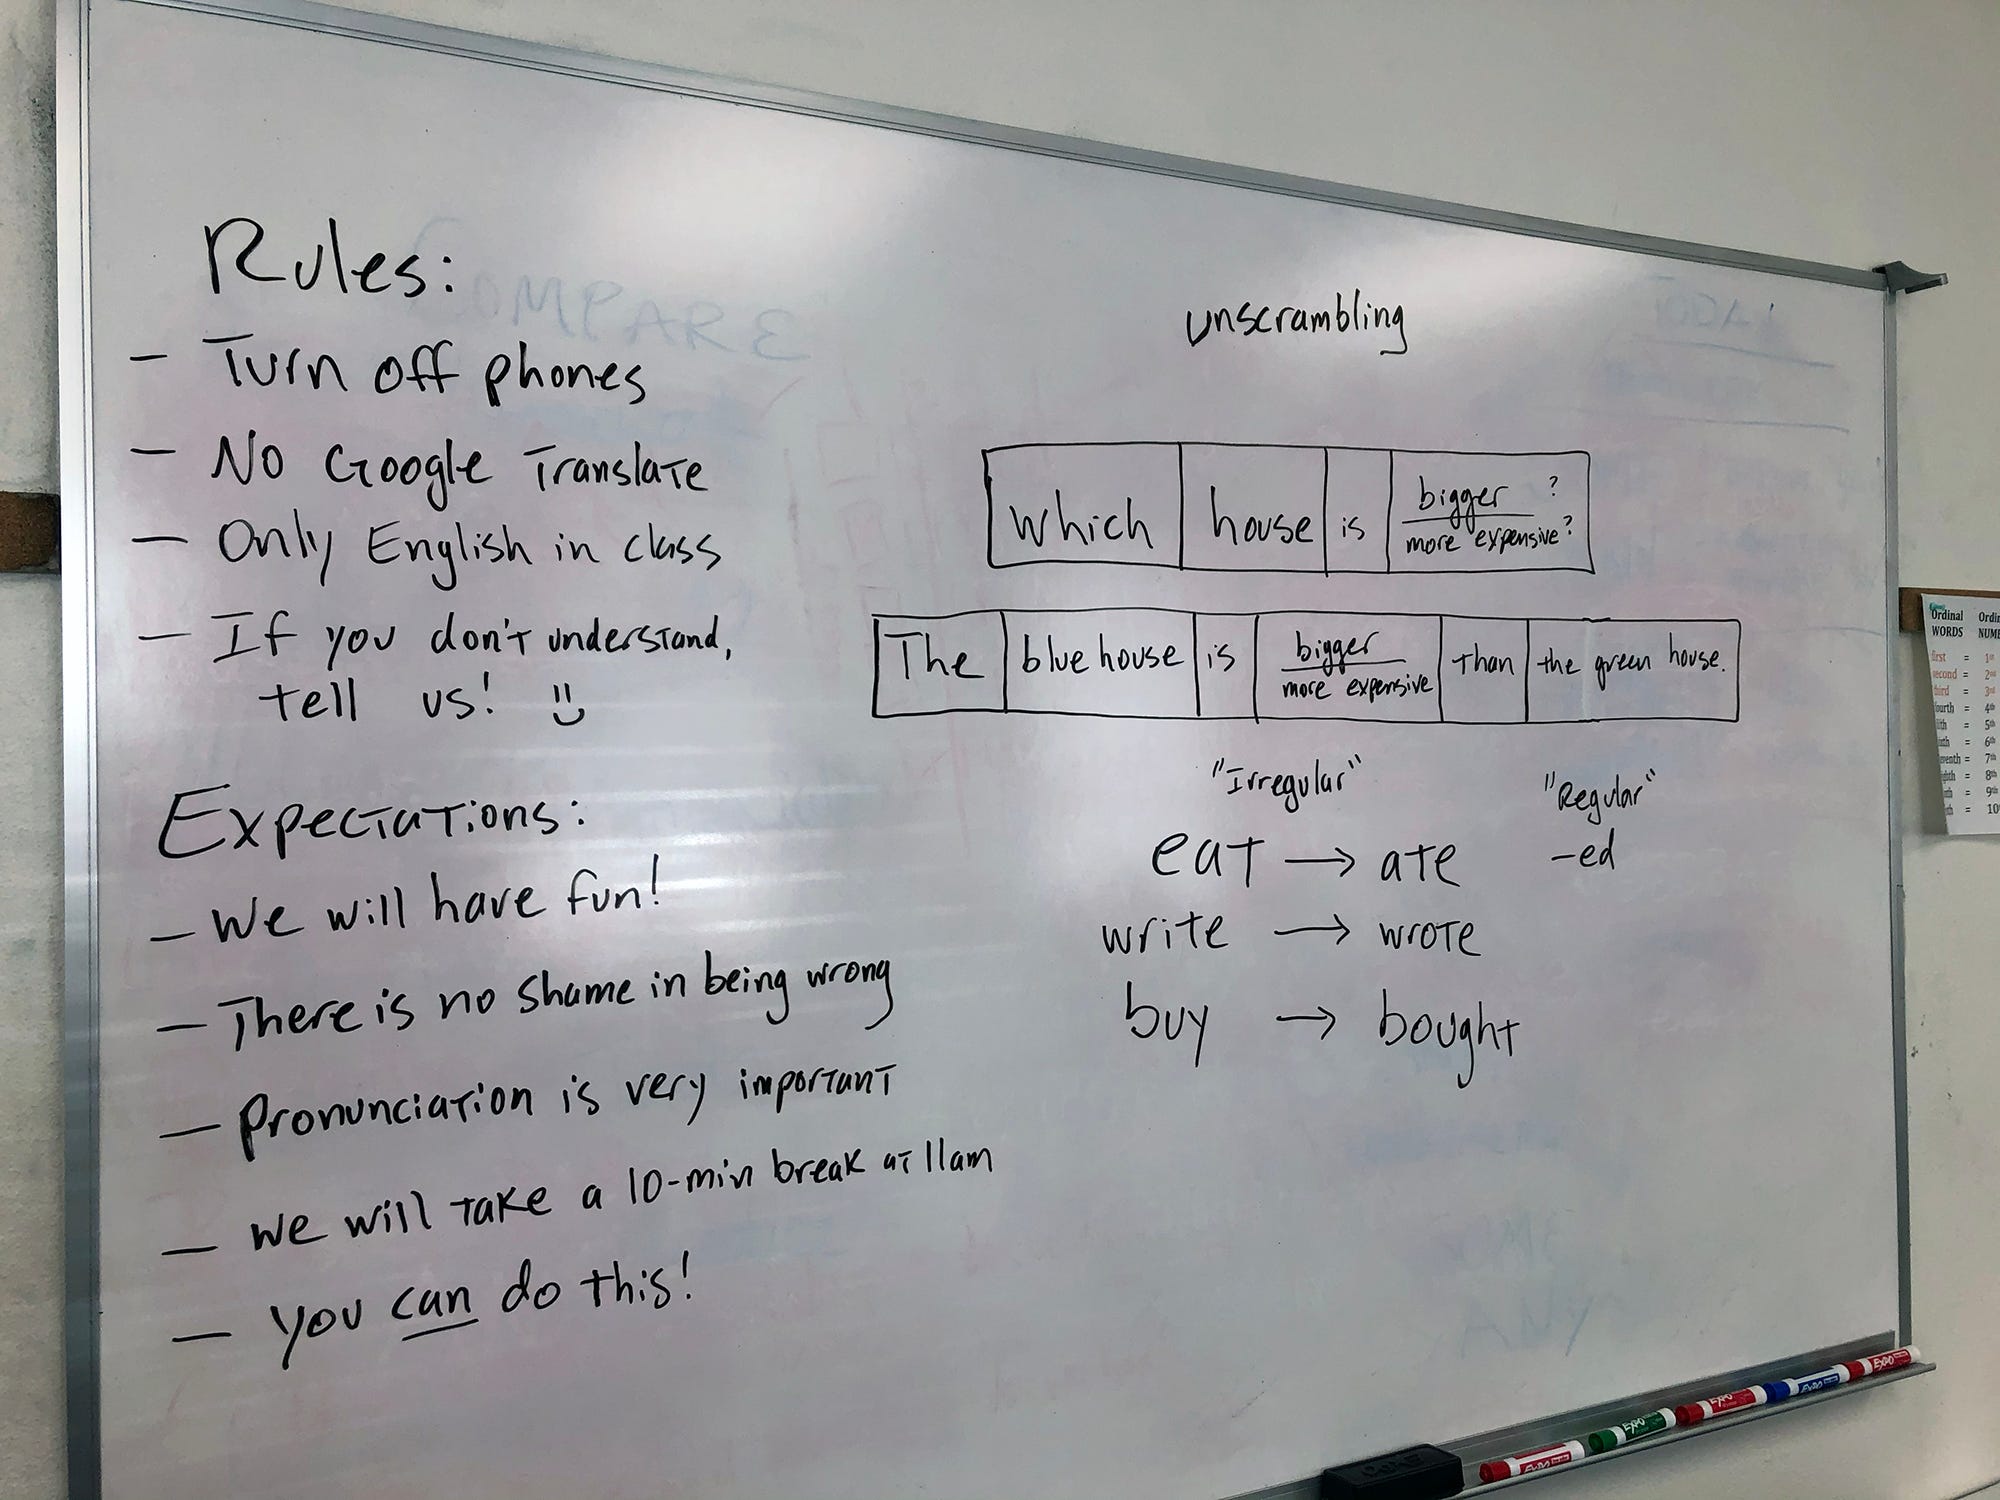 Rules:
- Turn off phones
- No Google Translate
- Only English in class
- If you don't understand,
tell us! :)
Expectations:
- We will have fun!
- There is no shame in being wrong
- Pronunciation is very important
- We will take a 10-min break at 11am
- You can do this!
COMPARE
unscrambling
Which house is bigger ?
more expensive?
The blue house is bigger than the green house.
more expensive
"Irregular" "Regular"
eat → ate -ed
write → wrote
buy → bought
Ordinal
WORDS
first = 1st
second = 2nd
third = 3rd
= 4th
= 5th
= 6th
= 7th
= 8th
= 9th
= 10
EXPO
EXPO
EXPO
EXPO
EXPO